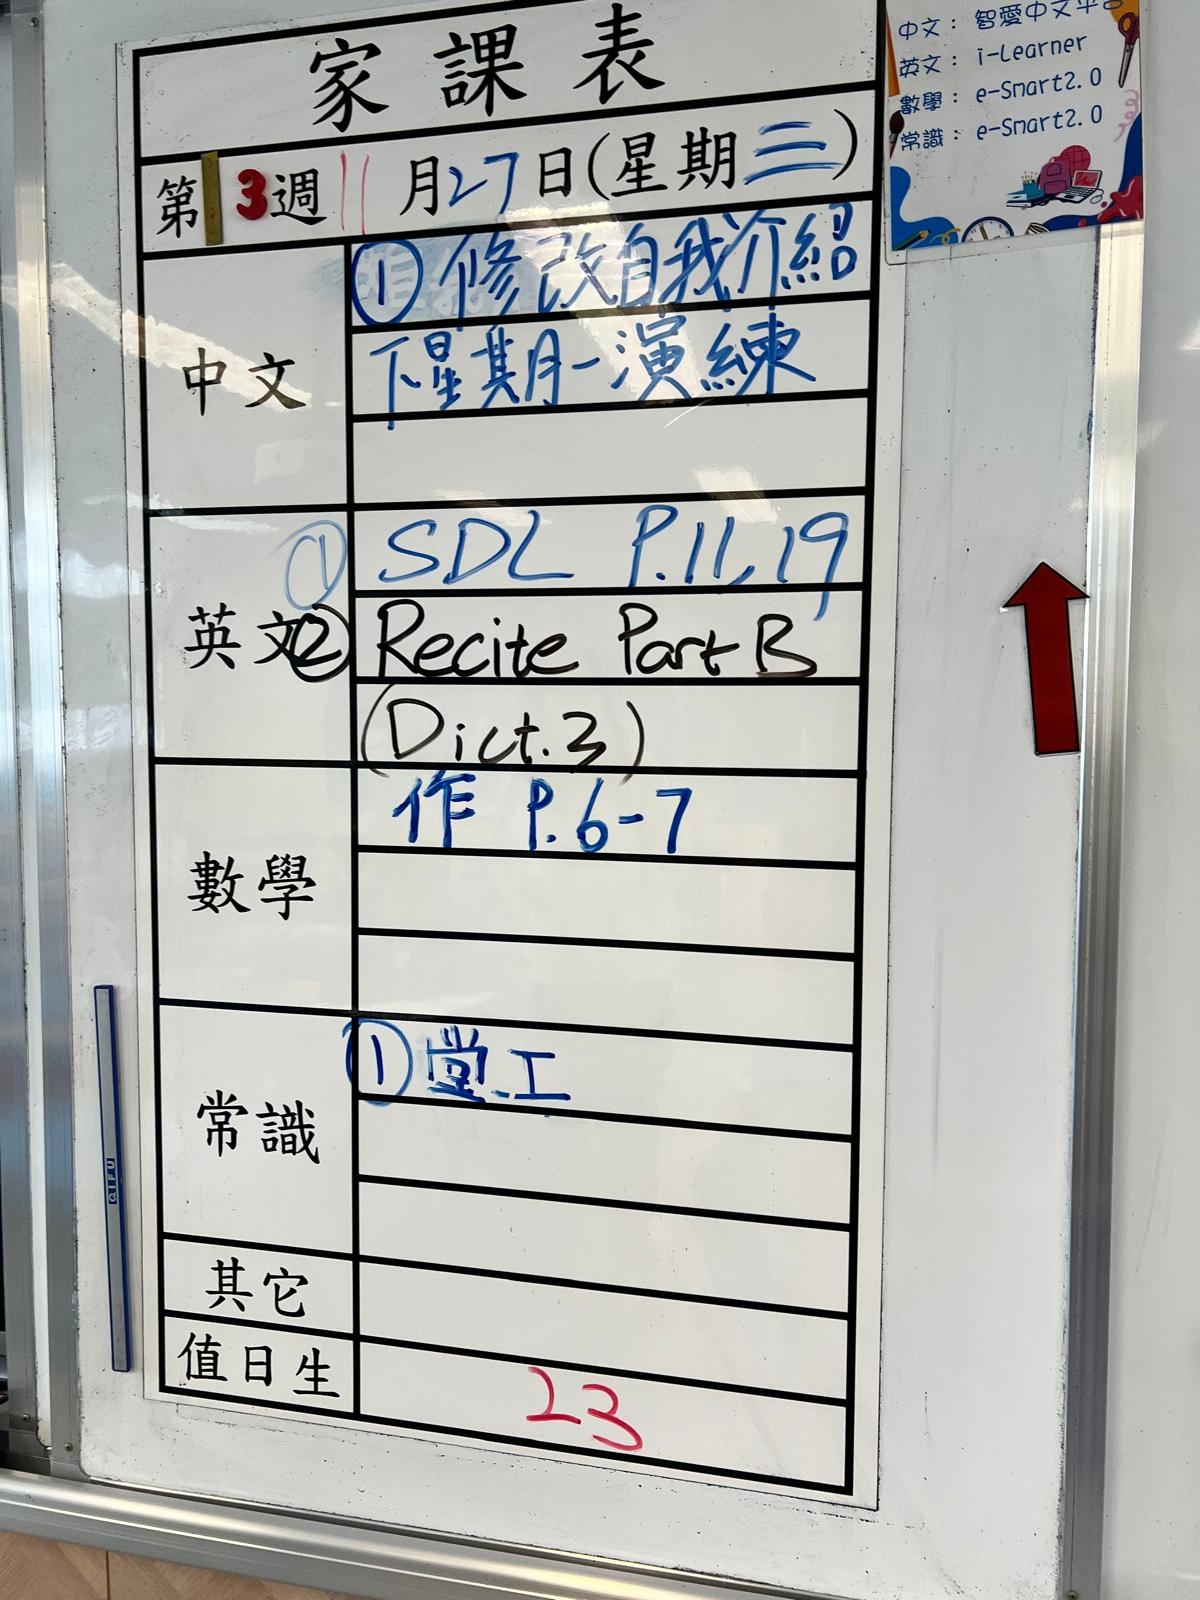 家課表
第13週 11月27日(星期三)
中文
① 修改自我介紹
下星期一演練
英文
① SDL P.11,19
② Recite Part B
(Dict.3)
數學
作 P.6-7
常識
① 堂工
其它
值日生
23
中文：智愛中文平台
英文：i-Learner
數學：e-Smart2.0
常識：e-Smart2.0
QIFU